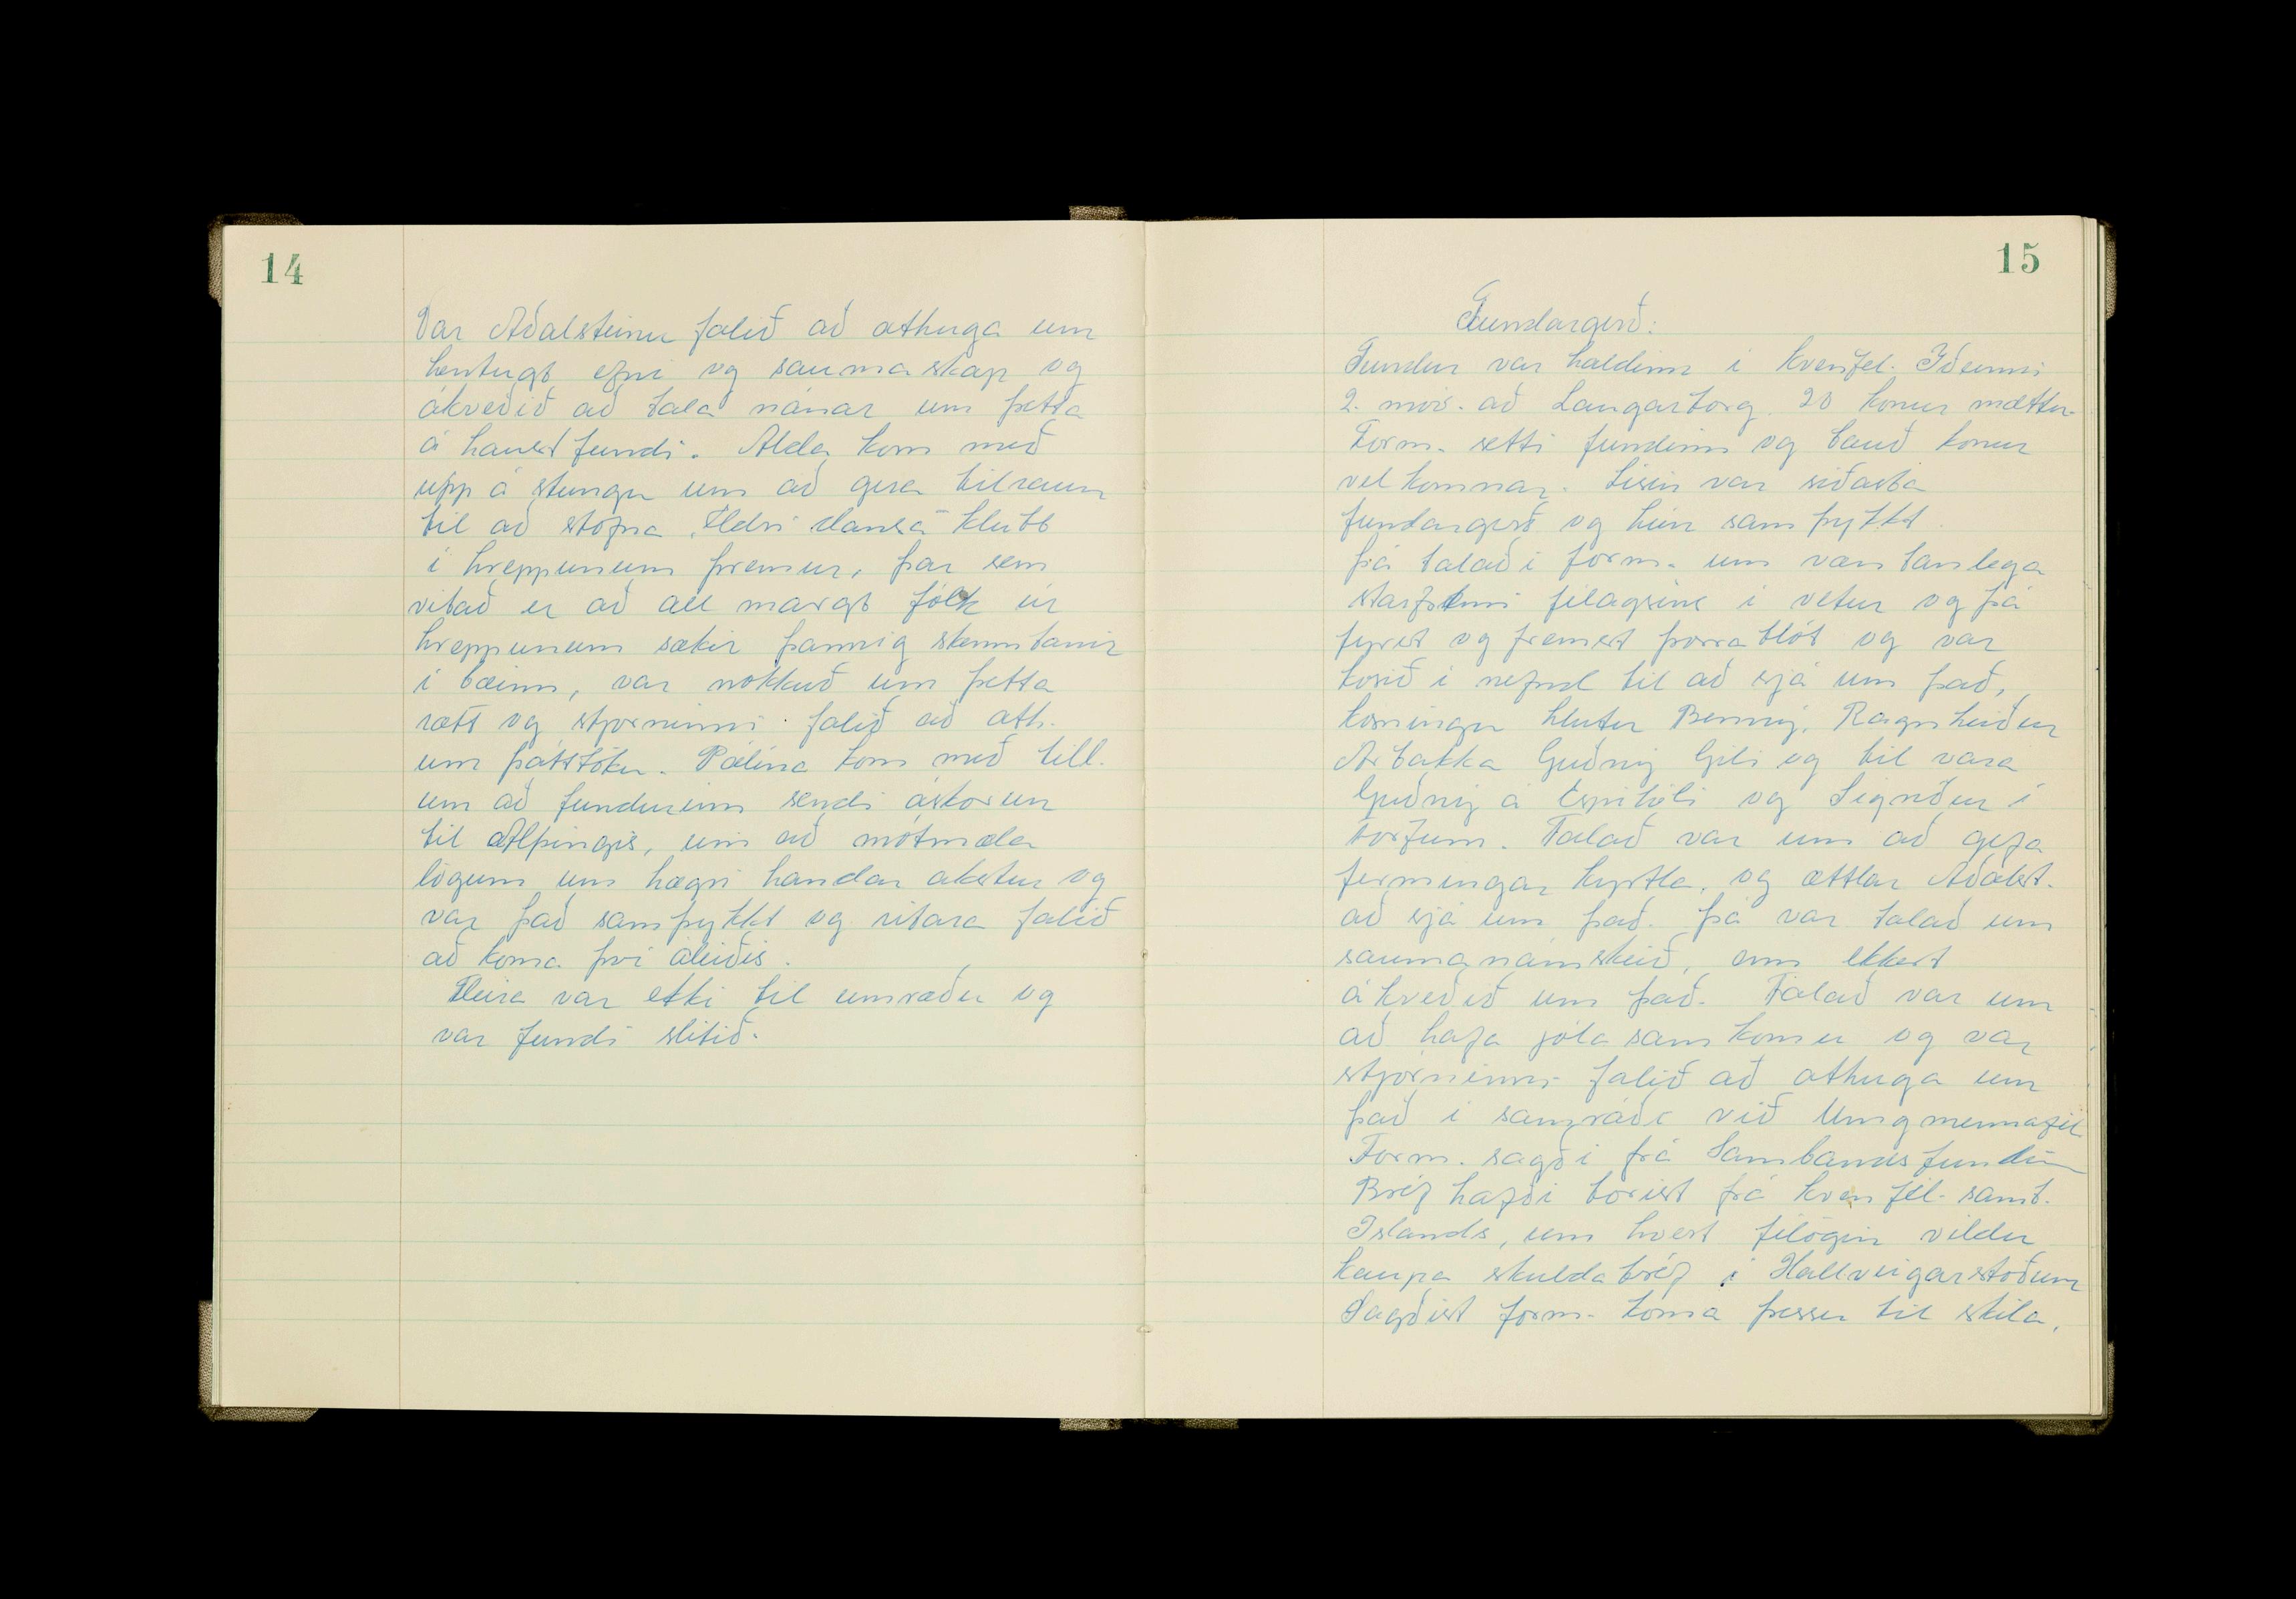 14
Var Aðalsteinu falið að athuga um
hentugt efni og sauma skap og
ákveðið að tala nánar um þetta
á haust fundi. Alda kom með
upp á stungu um að gera tilraun
til að stofna Eldri dansa klubb
í hreppunum þremur, þar sem
vitað er að all margt fólk úr
hreppunum sækir þannig skemtanir
í bæinn, var nokkuð um þetta
rætt og stjorninni falið að ath.
um þátttöku. Pálína kom með till.
um að fundurinn sendi áskorun
til Alþingis, um að mótmæla
lögum um hægri handar akstur og
var það samþykkt og ritara falið
að koma því áleiðis.
Fleira var ekki til umræðu og
var fundi slitið.
15
Fundargerð:
Fundur var haldinn í Kvenfel. Iðunni
2. nóv. að Laugarborg. 20 konur mættu.
Form. setti fundinn og bauð konur
vel komnar. Lisin var síðasta
fundargerð og hún sam þykkt.
þá talaði form. um væn tanlega
starfsemi félagsins í vetur og þá
fyrst og fremst þorra blót og var
kosið í nefnd til að sjá um það,
kosningu hlutu Benný, Ragnheiður
Árbakka Guðný Gili og til vara
Guðný á Espihóli og Sigríður í
Torfum. Talað var um að gefa
fermingar kyrtla, og ættlar Aðalst.
að sjá um það. þá var talað um
saumanámskeið, enn ekkert
ákveðið um það. Talað var um
að hafa jóla sam komu og var
stjórninni falið að athuga um
það í samráði við Ungmennafél.
Form. sagði frá Sambandsfundi
Bréf hafði borist frá kven fél. samb.
Islands, um hvert félögin vildu
kaupa skulda bréf í Hallveigarstöðum
Sagðist form. koma þessu til skila.